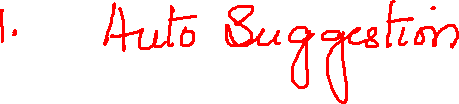 1. Auto Suggestion